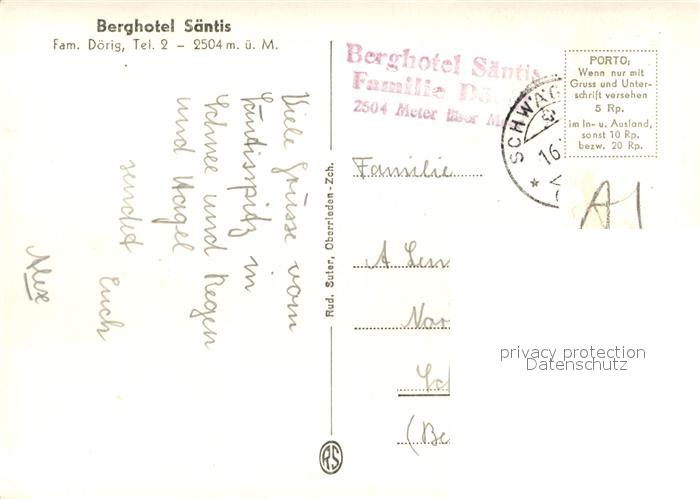 Berghotel Säntis
Fam. Dörig, Tel. 2 – 2504 m. ü. M.
Viele Grüsse vom
Säntisspitz in
Schnee und Regen
und Hagel
sendet Euch
Alex
Rud. Suter, Oberrieden-Zch.
RS
Berghotel Säntis
Familie Dö
2504 Meter über M
SCHWÄG
16.
PORTO:
Wenn nur mit
Gruss und Unter-
schrift versehen
5 Rp.
im In- u. Ausland,
sonst 10 Rp.
bezw. 20 Rp.
A1
Familie
A Len
Nor
(Be
privacy protection
Datenschutz